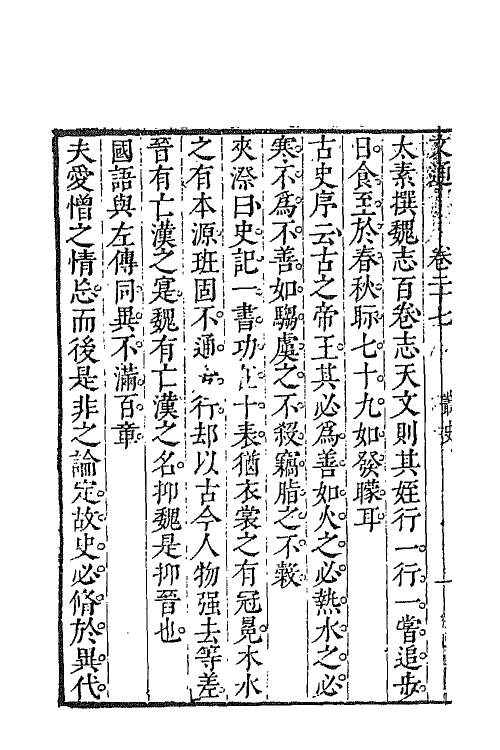 文通 卷二十七 叢史
太素撰魏志百卷志天文則其姪行一行一嘗追步
日食至於春秋眎七十九如發矇耳
古史序云古之帝王其必為善如火之必熱水之必
寒不為不善如騶虞之不殺竊脂之不穀
夾漈曰史記一書功在十表猶衣裳之有冠冕木水
之有本源班固不通 行却以古今人物强去等差
晉有亡漢之寔魏有亡漢之名抑魏是抑晉也
國語與左傳同異不滿百章
夫愛憎之情忘而後是非之論定故史必脩於異代